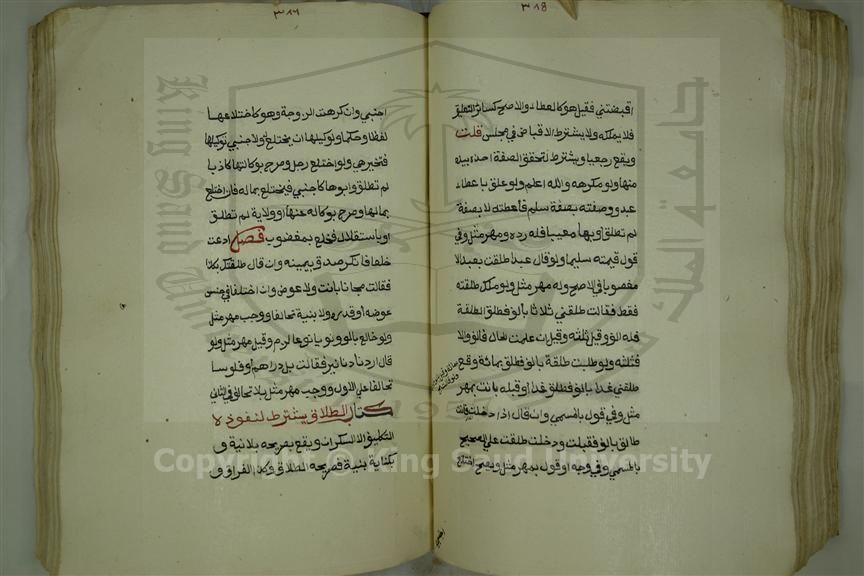 ٣١٨
اقبضتني فقيل هو كالعطاء والاصح كسائر التعليق
فلا يملكه ولا يشترط الاقباض في مجلس قلت
ويقع رجعيا ويشترط لتحقق الصفة اخذه بيده
منها ولو مكرهه والله اعلم ولو علق باعطاء
عبد ووصفه بصفة سلم فأعطته لا بصفة
لم تطلق او بها معيبا فله رده ومهر مثل وفي
قول قيمته سليما ولو قال عبدا طلقت بعبد الا
مغصوبا في الاصح وله مهر مثل ولو ملك طلقته
فقط فقالت طلقني ثلاثا بالف فطلق الطلقة
فله الف وقيل ثلثه وقيل ان علمت الحال فالف والا
فثلثه ولو طلبت طلقة بالف فطلق بمائة وقع
طلقني غدا بالف فطلق غدا او قبله بانت بمهر
مثل وفي قول بالمسمى وان قال اذا دخلت فانت
طالق بالف فقبلت ودخلت طلقت علي الصحيح
بالمسمي وفي وجه او قول بمهر مثل ويصح اختلاع
اجنبي
اجنبي وان كرهت الزوجة وهو كاختلاعها
لفظا وحكما ولوكيلها ان يختلع له ولاجنبي توكيلها
فتخير هي ولو اختلع رجل وصرح بوكالتها كاذبا
لم تطلق وابوها كاجنبي فيختلع بماله فان اختلع
بمالها وصرح بوكالة عنها او ولاية لم تطلق
او باستقلال فخلع بمغصوب فصل ادعت
خلعا فانكر صدق بيمينه وان قال طلقتك بكذا
فقالت مجانا بانت ولا عوض وان اختلفا في جنس
عوضه او قدره ولا بينة تحالفا ووجب مهر مثل
ولو خالع بالف ونويا نوعا لزم وقيل مهر مثل ولو
قال اردنا دنانير فقالت بل دراهم او فلوسا
تحالفا علي الاول ووجب مهر مثل بلا تحالف في الثاني
كتاب الطلاق يشترط لنفوذه
التكليف الا السكران ويقع بصريحه بلا نية و
بكناية بنية فصريحه الطلاق وكذا الفراق و
Copyright © King Saud University
King Saud University
جامعة الملك سعود
1957